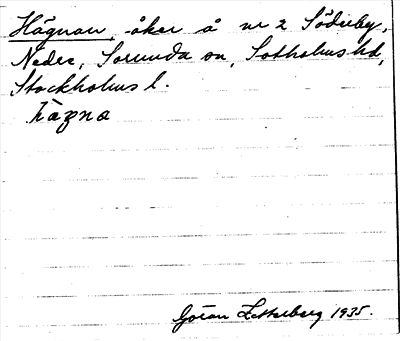 Hägnan, åker å nr 2 Söderby,
Nedre, Sorunda sn, Sotholms hd,
Stockholms l.
hägna
Göran Zetterberg 1935.